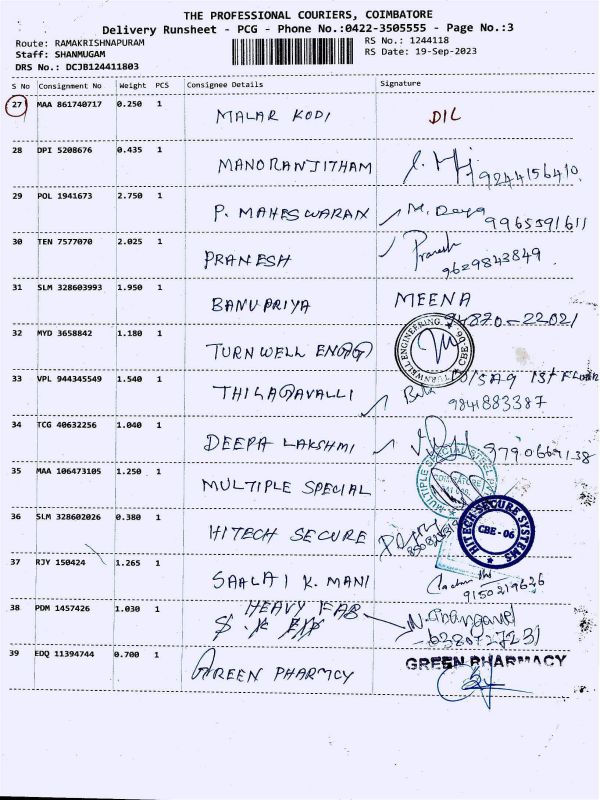 THE PROFESSIONAL COURIERS, COIMBATORE
Delivery Runsheet - PCG - Phone No.:0422-3505555 - Page No.:3
Route: RAMAKRISHNAPURAM RS No.: 1244118
Staff: SHANMUGAM RS Date: 19-Sep-2023
DRS No.: DCJB124411803
S No Consignment No Weight PCS Consignee Details Signature
27 MAA 861740717 0.250 1 MALAR KODI DIL
28 DPI 5208676 0.435 1 MANORANJITHAM 9244156410
29 POL 1941673 2.750 1 P. MAHESWARAN M. Daya 9965591611
30 TEN 7577070 2.025 1 PRANESH Pranesh 9629843849
31 SLM 328603993 1.950 1 BANUPRIYA MEENA 94870-22021
32 MYD 3658842 1.180 1 TURNWELL ENGG TURNWELL ENGINEERING CBE
33 VPL 944345549 1.540 1 THILAGAVALLI 1st FLOOR 9841883387
34 TCG 40632256 1.040 1 DEEPA LAKSHMI 9790669138
35 MAA 106473105 1.250 1 MULTIPLE SPECIAL MULTIPLE SPECIAL STEEL
36 SLM 328602026 0.380 1 HITECH SECURE HITECH SECURE SYSTEMS CBE - 06
37 RJY 150424 1.265 1 SAALAI K. MANI 9150219626
38 PDM 1457426 1.030 1 HEAVY FAB
6380727231
39 EDQ 11394744 0.700 1 GREEN PHARMCY GREEN PHARMACY